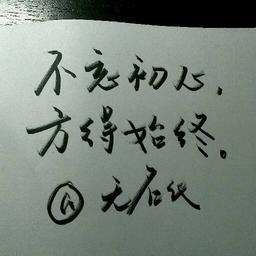 不忘初心，
方得始终。
@无名氏